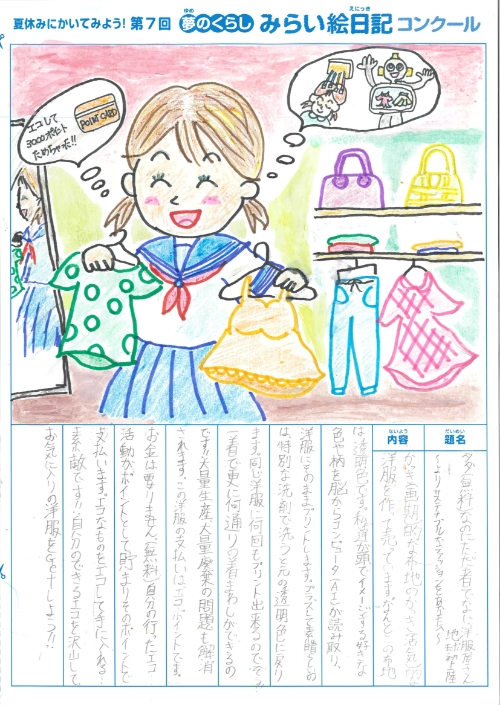 夏休みにかいてみよう! 第7回 夢のくらし みらい絵日記 コンクール
ゆめ
えにっき
エコして
3000ポイント
ためちゃった!!
POINT CARD
題名
だいめい
タダ(無料)なのにただ者でない洋服屋さん
内容
ないよう
洋服を作って売っています。なんと、の布地
は透明色です。私達が頭でイメージする好きな
色や柄を脳からコンピュータ(AI)が読み取り、
洋服にそのままプリントします。
は特別な洗剤で洗うと元の透明色に戻り
ます。同じ洋服に何回もプリント出来るので
一着で更に何通りの着まわしができるの
です!!大量生産、大量廃棄の問題も解消
されます。この洋服の支払いは、エコポイントです。
お金は要りません(無料)自分の行ったエコ
活動がポイントとして貯まりそのポイントで
支払います。エコなものをエコして手に入れる…
素敵です!!自分のできるエコを沢山して、
お気に入りの洋服をGetしよう!!